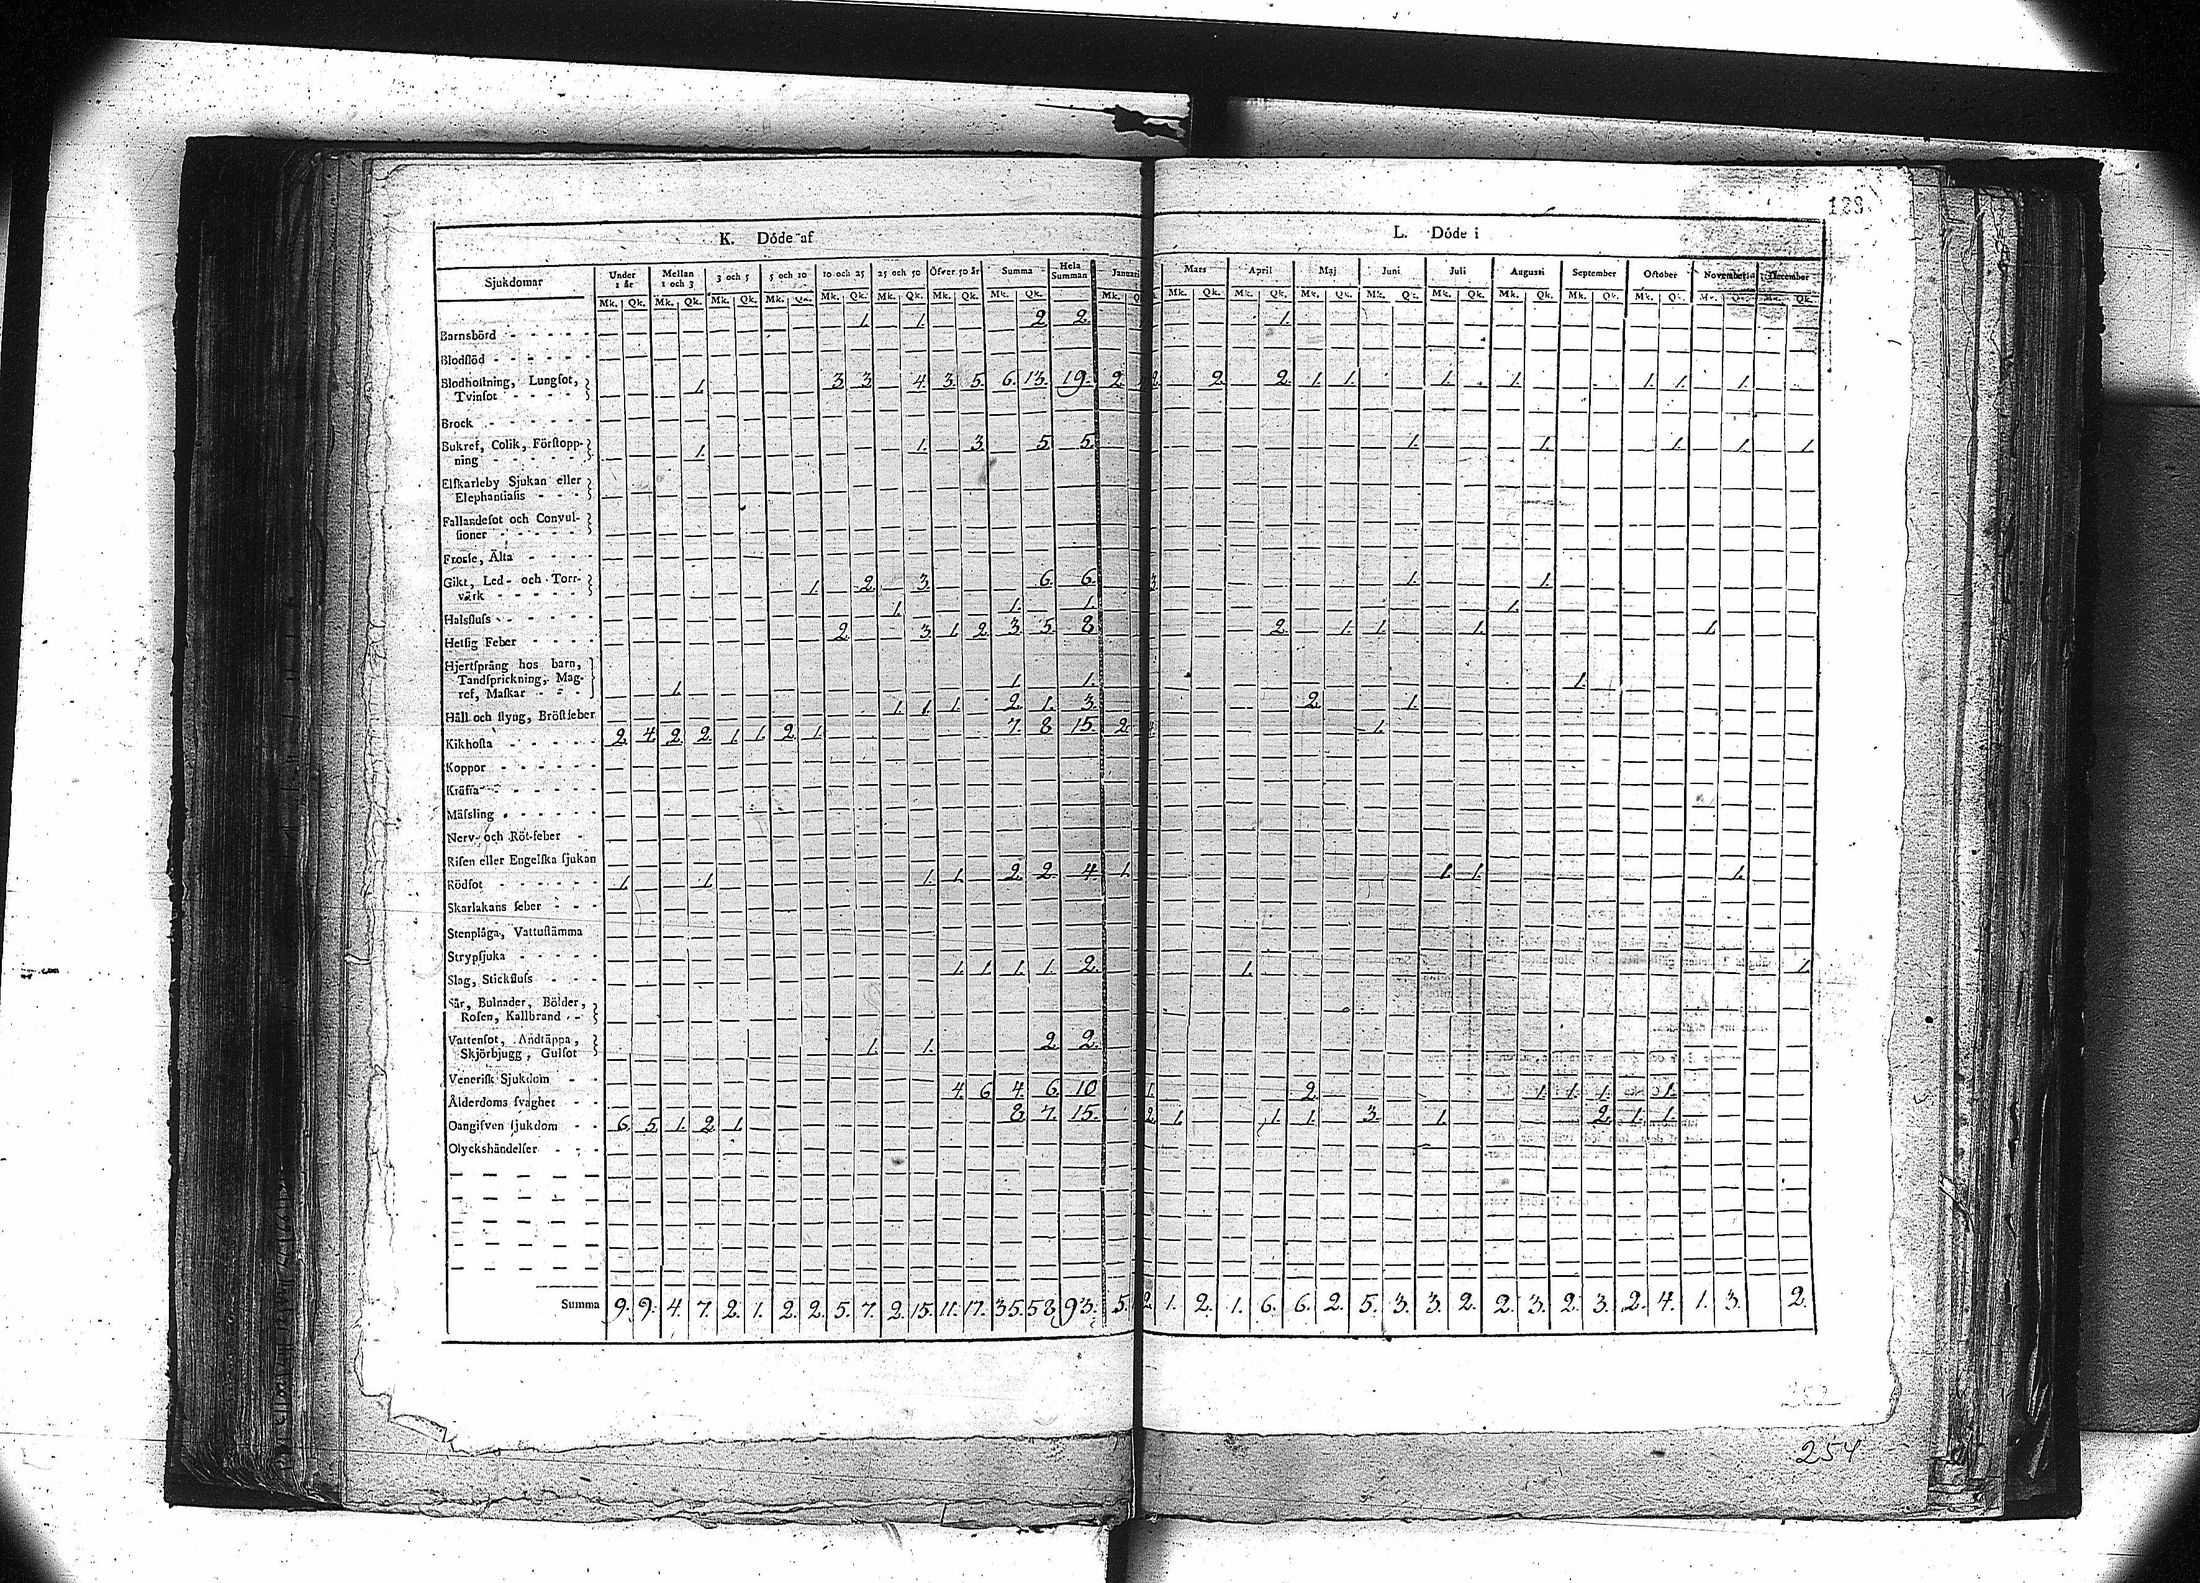 129.
K. Döde af
L. Döde i
Sjukdomar Under 1 år Mellan 1 och 3 3 och 5 5 och 10 10 och 25 25 och 50 Öfver 50 år Summa Hela Summan Januari Mars April Maj Juni Juli Augusti September October November December
Mk. Qk. Mk. Qk. Mk. Qk. Mk. Qk. Mk. Qk. Mk. Qk. Mk. Qk. Mk. Qk. Mk. Mk. Qk. Mk. Qk. Mk. Qk. Mk. Qk. Mk. Qk. Mk. Qk. Mk. Qk. Mk. Qk. Mk. Qk. Mk. Qk.
Barnsbörd - - - - - 1. 1. 2. 2. 1.
Blodflöd - - - - - -
Blodhostning, Lungſot,
Tvinſot - - - - 1. 3. 3. 4. 3. 5. 6. 13. 19. 2. 2. 2. 2. 1. 1. 1. 1. 1. 1. 1.
Brock - - - - - -
Bukref, Colik, Förſtopp-
ning - - - - - 1. 1. 3. 5. 5. 1. 1. 1. 1. 1.
Elſkarleby Sjukan eller
Elephantiaſis - - -
Fallandeſot och Convul-
ſioner - - - - -
Froſſe, Älta - - - -
Gikt, Led- och Torr-
värk - - - - - 1. 2. 3. 6. 6. 3. 1. 1.
Halsfluſs - - - - - 1. 1. 1. 1.
Hetſig Feber - - - - 2. 3. 1. 2. 3. 5. 8. 2. 1. 1. 1. 1.
Hjertſprång hos barn,
Tandſprickning, Mag-
ref, Maſkar - - - 1. 1. 1. 1.
Håll och ſtyng, Bröſtfeber 1. 1. 1. 2. 1. 3. 2. 1.
Kikhoſta - - - - - 2. 4. 2. 2. 1. 1. 2. 1. 7. 8. 15. 2. 4. 1.
Koppor - - - - -
Kräfta - - - - - -
Mäſsling - - - - -
Nerv- och Röt-feber -
Riſen eller Engelſka ſjukan
Rödſot - - - - - - 1. 1. 1. 1. 2. 2. 4. 1. 1. 1. 1.
Skarlakans feber - - -
Stenplåga, Vattuſtämma
Strypſjuka - - - - -
Slag, Stickfluſs - - - 1. 1. 1. 1. 2. 1. 1.
Sår, Bulnader, Bölder,
Roſen, Kallbrand - -
Vattenſot, Andtäppa,
Skjörbjugg, Gulſot 1. 1. 2. 2.
Veneriſk Sjukdom - -
Ålderdoms ſvaghet - - 4. 6. 4. 6. 10 1. 2. 1. 1. 1. 1.
Oangifven ſjukdom - - 6. 5. 1. 2. 1. 8. 7. 15. 2. 1. 1. 1. 3. 1. 2. 1. 1.
Olyckshändelſer - - -
Summa 9. 9. 4. 7. 2. 1. 2. 2. 5. 7. 2. 15. 11. 17. 35. 58. 93. 5. 2. 1. 2. 1. 6. 6. 2. 5. 3. 3. 2. 2. 3. 2. 3. 2. 4. 1. 3. 2.
254